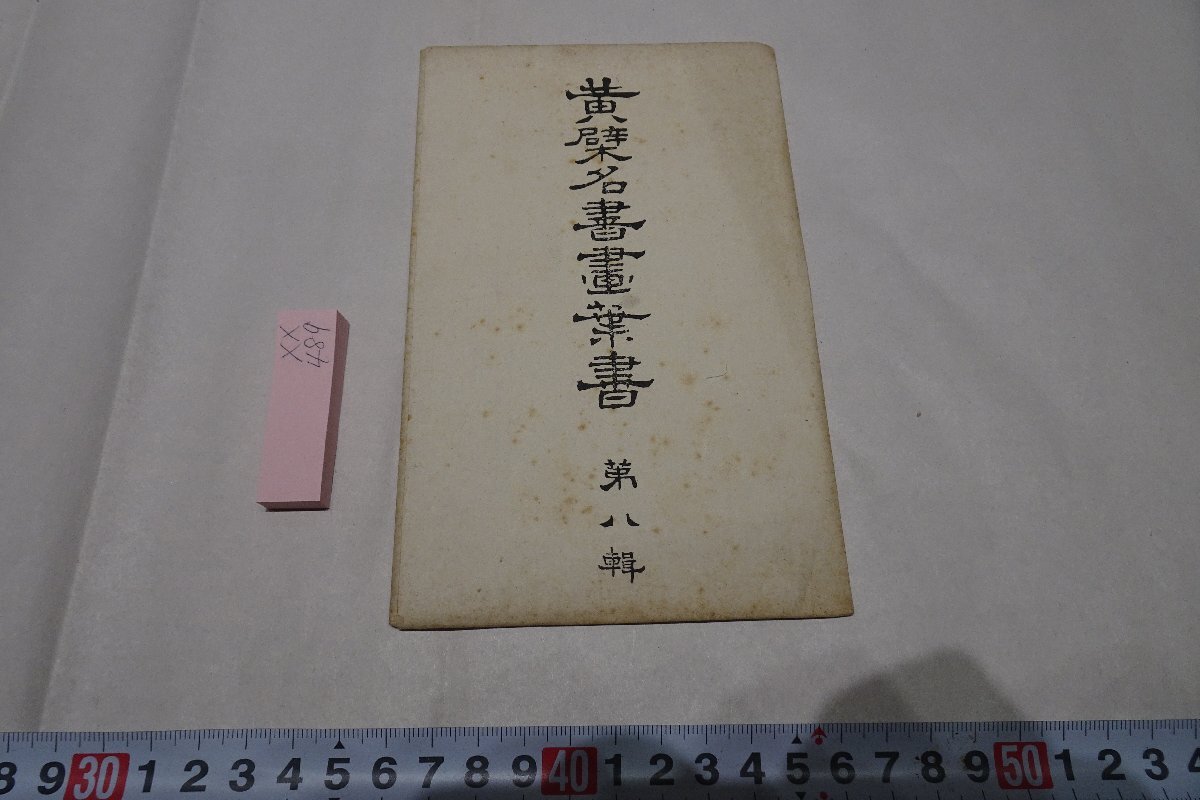 黄檗名書畫葉書
第八輯
489
XX
8 9 30 1 2 3 4 5 6 7 8 9 40 1 2 3 4 5 6 7 8 9 50 1 2 3 4